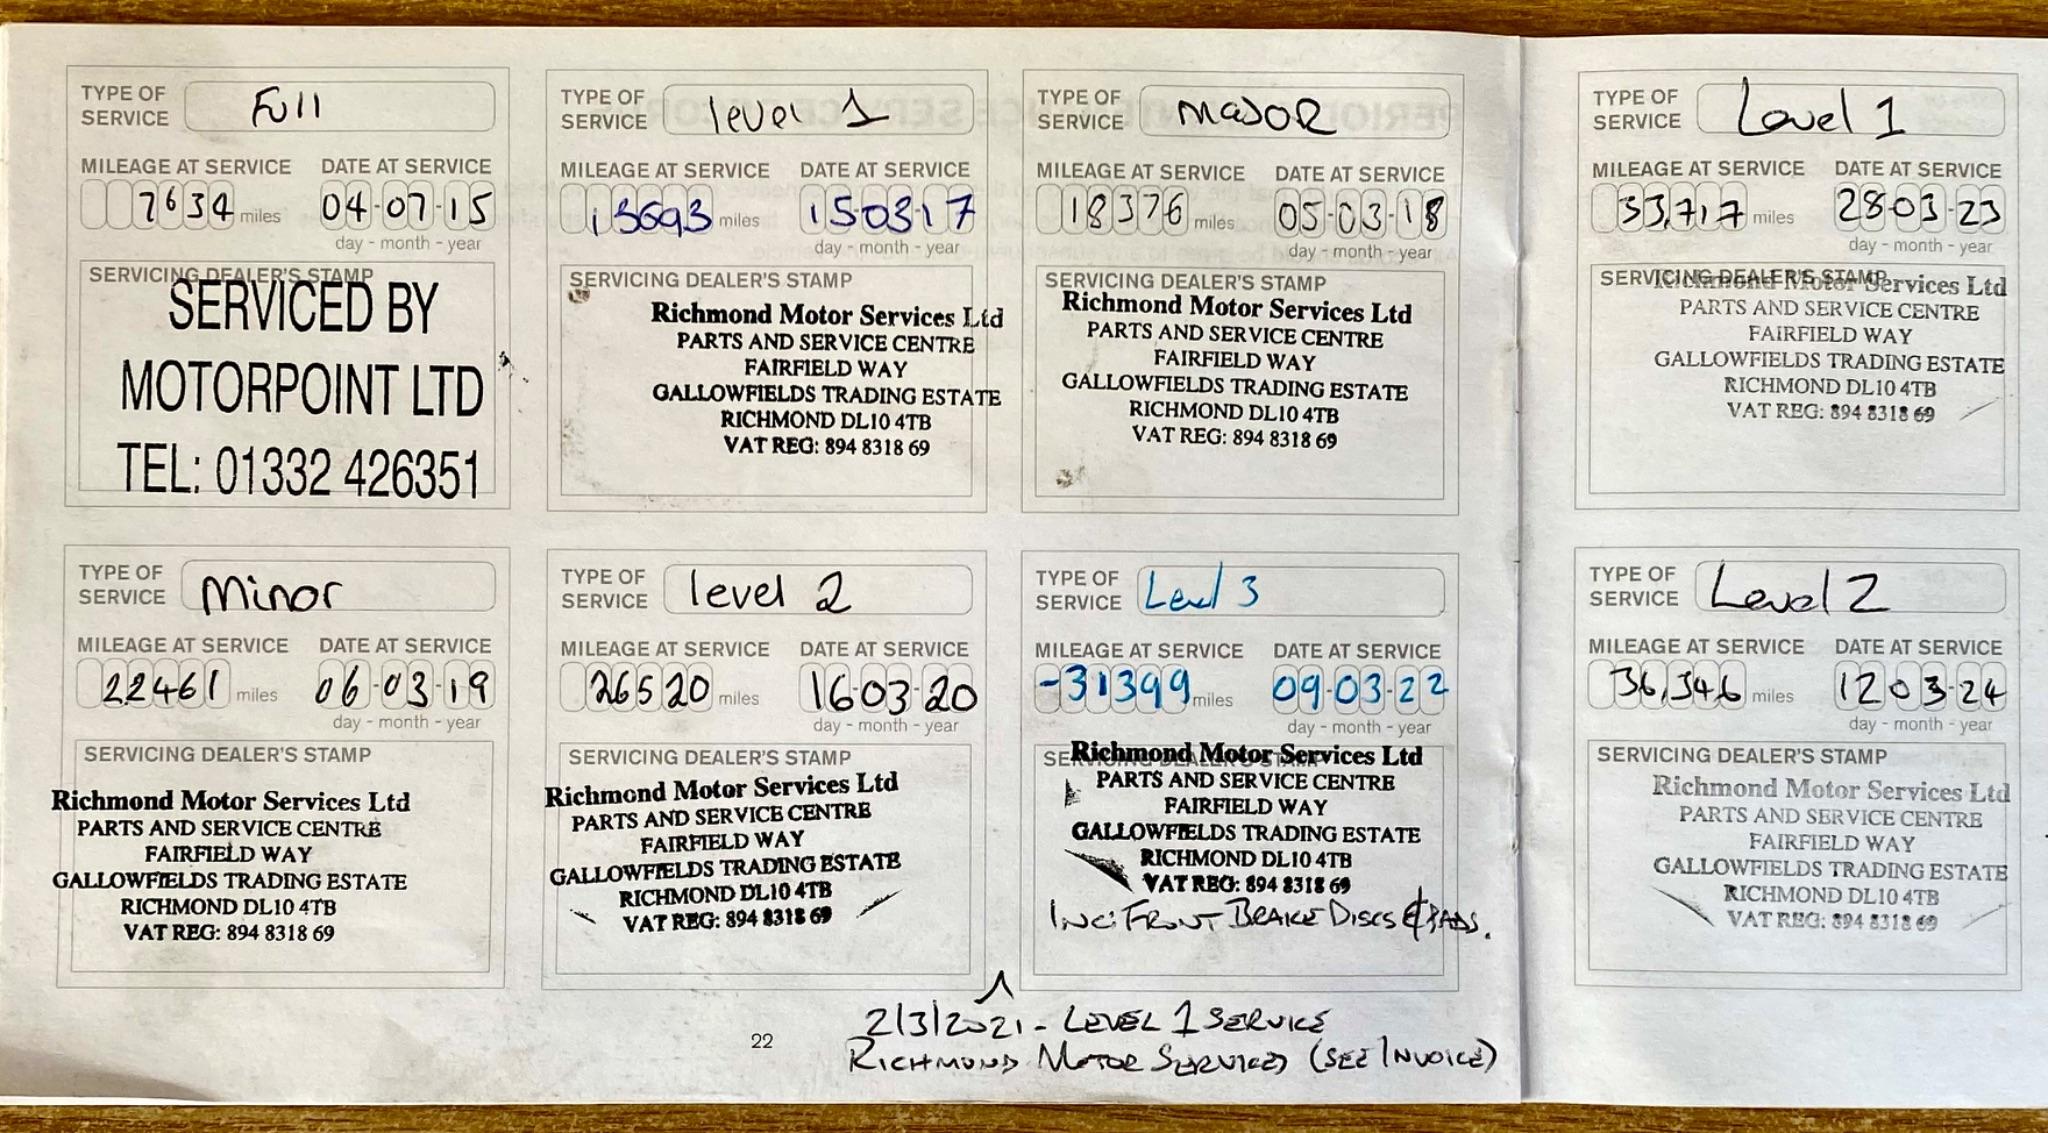 TYPE OF SERVICE Full
MILEAGE AT SERVICE DATE AT SERVICE
7634 miles 04-07-15
day - month - year
SERVICING DEALER'S STAMP
SERVICED BY
MOTORPOINT LTD
TEL: 01332 426351
TYPE OF SERVICE level 1
MILEAGE AT SERVICE DATE AT SERVICE
13693 miles 15-03-17
day - month - year
SERVICING DEALER'S STAMP
Richmond Motor Services Ltd
PARTS AND SERVICE CENTRE
FAIRFIELD WAY
GALLOWFIELDS TRADING ESTATE
RICHMOND DL10 4TB
VAT REG: 894 8318 69
TYPE OF SERVICE MAJOR
MILEAGE AT SERVICE DATE AT SERVICE
18376 miles 05-03-18
day - month - year
SERVICING DEALER'S STAMP
Richmond Motor Services Ltd
PARTS AND SERVICE CENTRE
FAIRFIELD WAY
GALLOWFIELDS TRADING ESTATE
RICHMOND DL10 4TB
VAT REG: 894 8318 69
TYPE OF SERVICE Minor
MILEAGE AT SERVICE DATE AT SERVICE
22461 miles 06-03-19
day - month - year
SERVICING DEALER'S STAMP
Richmond Motor Services Ltd
PARTS AND SERVICE CENTRE
FAIRFIELD WAY
GALLOWFIELDS TRADING ESTATE
RICHMOND DL10 4TB
VAT REG: 894 8318 69
TYPE OF SERVICE level 2
MILEAGE AT SERVICE DATE AT SERVICE
26520 miles 16-03-20
day - month - year
SERVICING DEALER'S STAMP
Richmond Motor Services Ltd
PARTS AND SERVICE CENTRE
FAIRFIELD WAY
GALLOWFIELDS TRADING ESTATE
RICHMOND DL10 4TB
VAT REG: 894 8318 69
TYPE OF SERVICE Level 3
MILEAGE AT SERVICE DATE AT SERVICE
-31399 miles 09-03-22
day - month - year
SERVICING DEALER'S STAMP
Richmond Motor Services Ltd
PARTS AND SERVICE CENTRE
FAIRFIELD WAY
GALLOWFIELDS TRADING ESTATE
RICHMOND DL10 4TB
VAT REG: 894 8318 69
INC: FRONT BRAKE DISCS & PADS.
2/3/2021 - LEVEL 1 SERVICE
RICHMOND MOTOR SERVICES (SEE INVOICE)
22
TYPE OF SERVICE Level 1
MILEAGE AT SERVICE DATE AT SERVICE
33,717 miles 28-03-23
day - month - year
SERVICING DEALER'S STAMP
Richmond Motor Services Ltd
PARTS AND SERVICE CENTRE
FAIRFIELD WAY
GALLOWFIELDS TRADING ESTATE
RICHMOND DL10 4TB
VAT REG: 894 8318 69
TYPE OF SERVICE Level 2
MILEAGE AT SERVICE DATE AT SERVICE
36,346 miles 12-03-24
day - month - year
SERVICING DEALER'S STAMP
Richmond Motor Services Ltd
PARTS AND SERVICE CENTRE
FAIRFIELD WAY
GALLOWFIELDS TRADING ESTATE
RICHMOND DL10 4TB
VAT REG: 894 8318 69